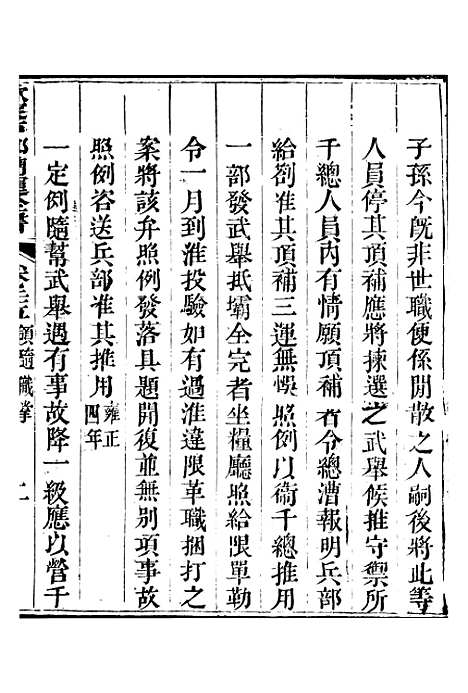 子孫今旣非世職便係閒散之人嗣後將此等
人員停其頂補應將揀選之武舉候推守禦所
千總人員內有情願頂補者令總漕報明兵部
給劄准其頂補三運無悞照例以衞千總推用
一部發武舉抵壩全完者坐糧廳照給限單勒
令一月到淮投驗如有過淮違限革職捆打之
案將該弁照例發落具題開復並無別項事故
照例咨送兵部准其推用雍正四年
一定例隨幫武舉遇有事故降一級應以營千
卷之五領隨職掌